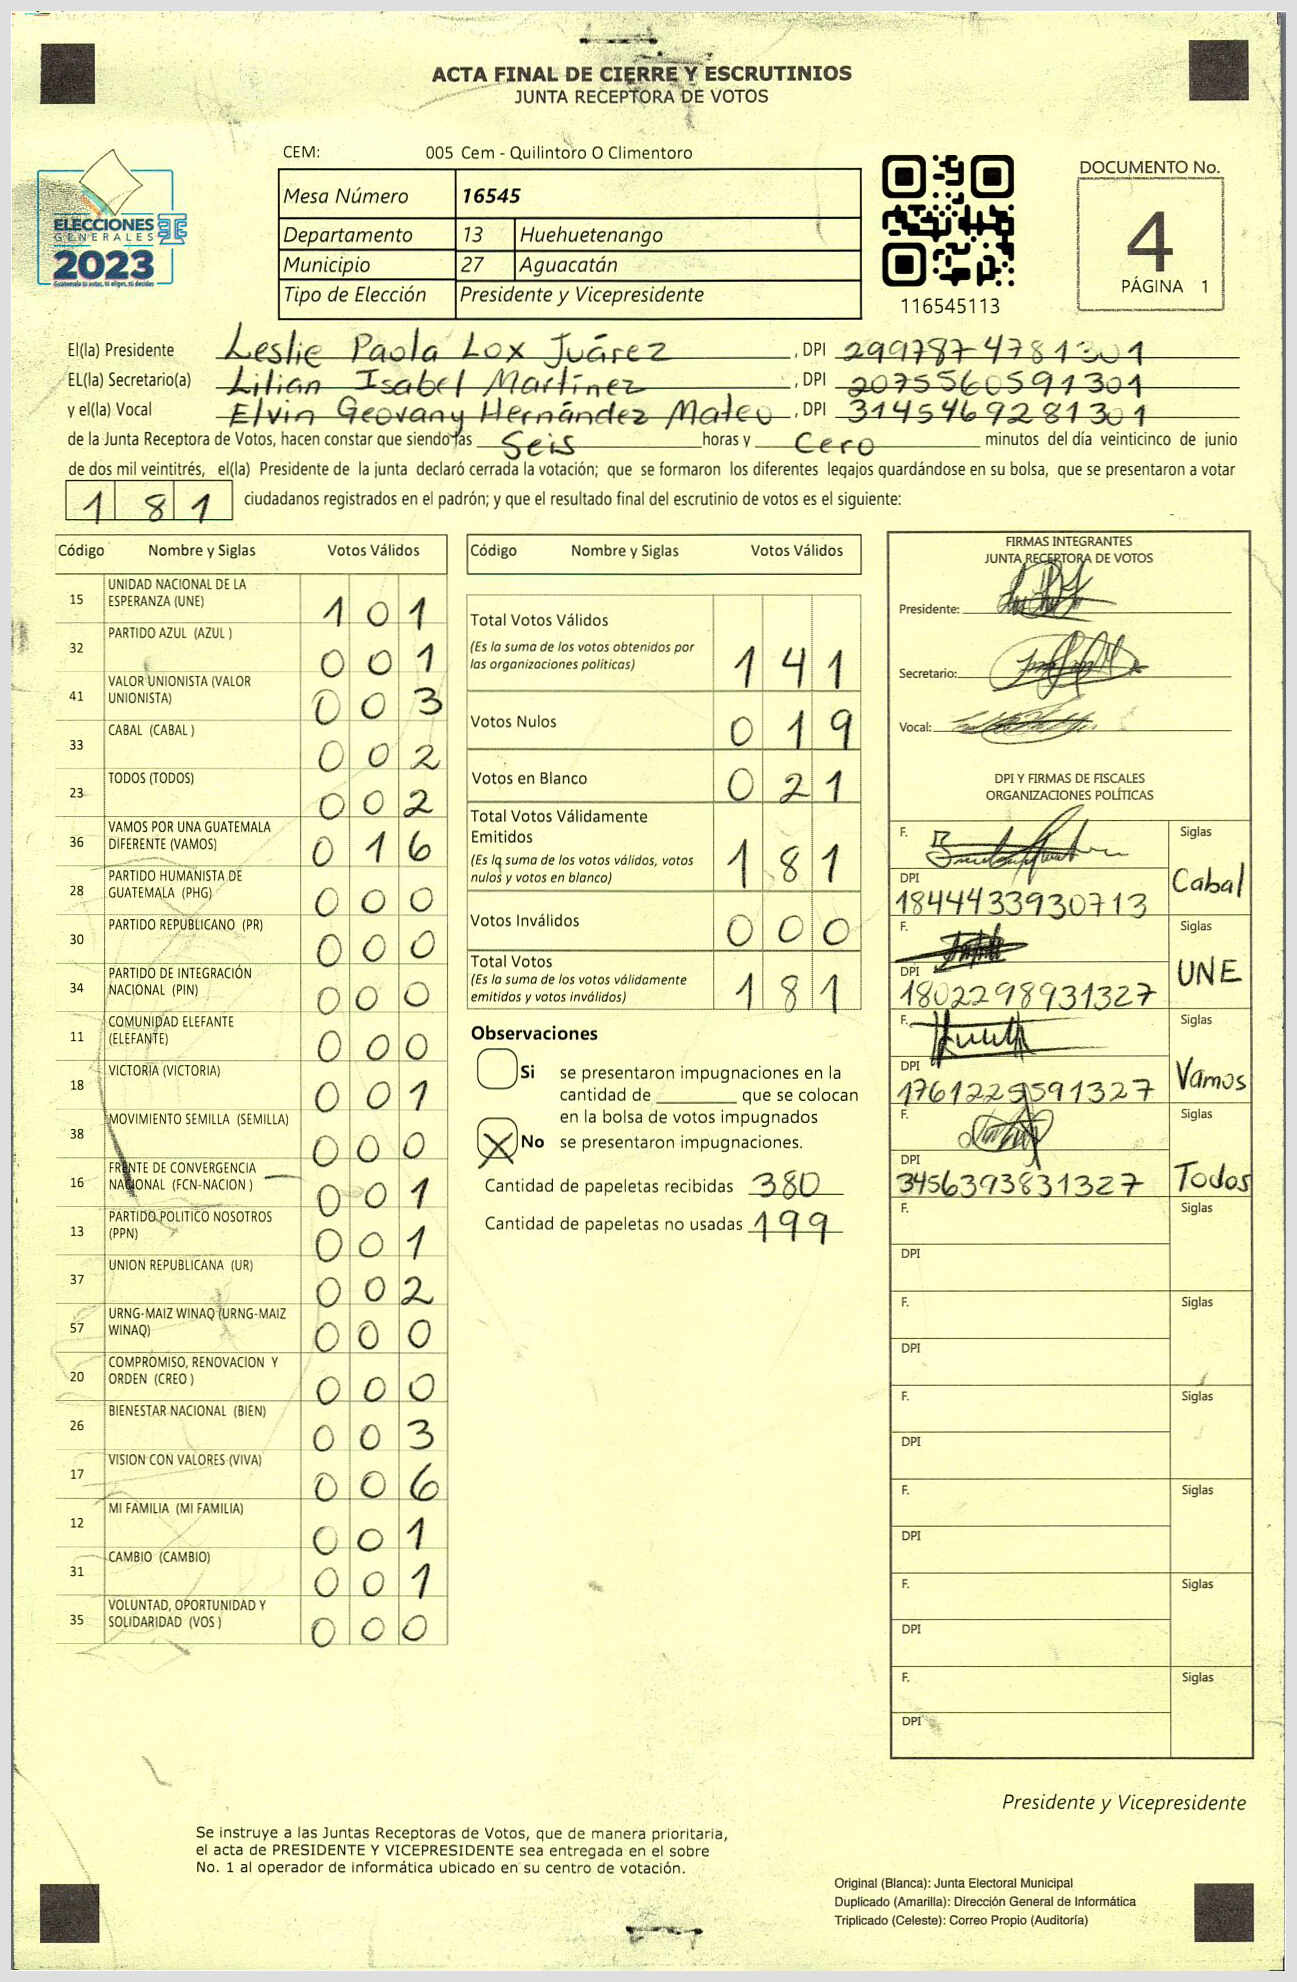 ACTA FINAL DE CIERRE Y ESCRUTINIOS
JUNTA RECEPTORA DE VOTOS
CEM: 005 Cem - Quilintoro O Climentoro
Mesa Número 16545
Departamento 13 Huehuetenango
Municipio 27 Aguacatán
Tipo de Elección Presidente y Vicepresidente
ELECCIONES
GENERALES
2023
116545113
DOCUMENTO No.
4
PÁGINA 1
El(la) Presidente Leslie Paola Lox Juárez, DPI 2997874781301
EL(la) Secretario(a) Lilian Isabel Martínez, DPI 2075560591301
y el(la) Vocal Elvin Geovany Hernández Mateo, DPI 3145469281301
de la Junta Receptora de Votos, hacen constar que siendo las Seis horas y Cero minutos del día veinticinco de junio
de dos mil veintitrés, el(la) Presidente de la junta declaró cerrada la votación; que se formaron los diferentes legajos quardándose en su bolsa, que se presentaron a votar
181 ciudadanos registrados en el padrón; y que el resultado final del escrutinio de votos es el siguiente:
Código Nombre y Siglas Votos Válidos
15 UNIDAD NACIONAL DE LA ESPERANZA (UNE) 101
32 PARTIDO AZUL (AZUL ) 001
41 VALOR UNIONISTA (VALOR UNIONISTA) 003
33 CABAL (CABAL ) 002
23 TODOS (TODOS) 002
36 VAMOS POR UNA GUATEMALA DIFERENTE (VAMOS) 016
28 PARTIDO HUMANISTA DE GUATEMALA (PHG) 000
30 PARTIDO REPUBLICANO (PR) 000
34 PARTIDO DE INTEGRACIÓN NACIONAL (PIN) 000
11 COMUNIDAD ELEFANTE (ELEFANTE) 000
18 VICTORIA (VICTORIA) 001
38 MOVIMIENTO SEMILLA (SEMILLA) 000
16 FRENTE DE CONVERGENCIA NACIONAL (FCN-NACION ) 001
13 PARTIDO POLITICO NOSOTROS (PPN) 001
37 UNION REPUBLICANA (UR) 002
57 URNG-MAIZ WINAQ (URNG-MAIZ WINAQ) 000
20 COMPROMISO, RENOVACION Y ORDEN (CREO ) 000
26 BIENESTAR NACIONAL (BIEN) 003
17 VISION CON VALORES (VIVA) 006
12 MI FAMILIA (MI FAMILIA) 001
31 CAMBIO (CAMBIO) 001
35 VOLUNTAD, OPORTUNIDAD Y SOLIDARIDAD (VOS ) 000
Código Nombre y Siglas Votos Válidos
Total Votos Válidos 141
(Es la suma de los votos obtenidos por
las organizaciones políticas)
Votos Nulos 019
Votos en Blanco 021
Total Votos Válidamente
Emitidos 181
(Es la suma de los votos válidos, votos
nulos y votos en blanco)
Votos Inválidos 000
Total Votos 181
(Es la suma de los votos válidamente
emitidos y votos inválidos)
Observaciones
Si se presentaron impugnaciones en la
cantidad de ________ que se colocan
en la bolsa de votos impugnados
X No se presentaron impugnaciones.
Cantidad de papeletas recibidas 380
Cantidad de papeletas no usadas 199
FIRMAS INTEGRANTES
JUNTA RECEPTORA DE VOTOS
Presidente:
Secretario:
Vocal:
DPI Y FIRMAS DE FISCALES
ORGANIZACIONES POLÍTICAS
F. Siglas
DPI Cabal
1844433930713
F. Siglas
DPI UNE
1802298931327
F. Siglas
DPI Vamos
1761225591327
F. Siglas
DPI Todos
3456393831327
F. Siglas
DPI
F. Siglas
DPI
F. Siglas
DPI
F. Siglas
DPI
F. Siglas
DPI
F. Siglas
DPI
Presidente y Vicepresidente
Se instruye a las Juntas Receptoras de Votos, que de manera prioritaria,
el acta de PRESIDENTE Y VICEPRESIDENTE sea entregada en el sobre
No. 1 al operador de informática ubicado en su centro de votación.
Original (Blanca): Junta Electoral Municipal
Duplicado (Amarilla): Dirección General de Informática
Triplicado (Celeste): Correo Propio (Auditoría)